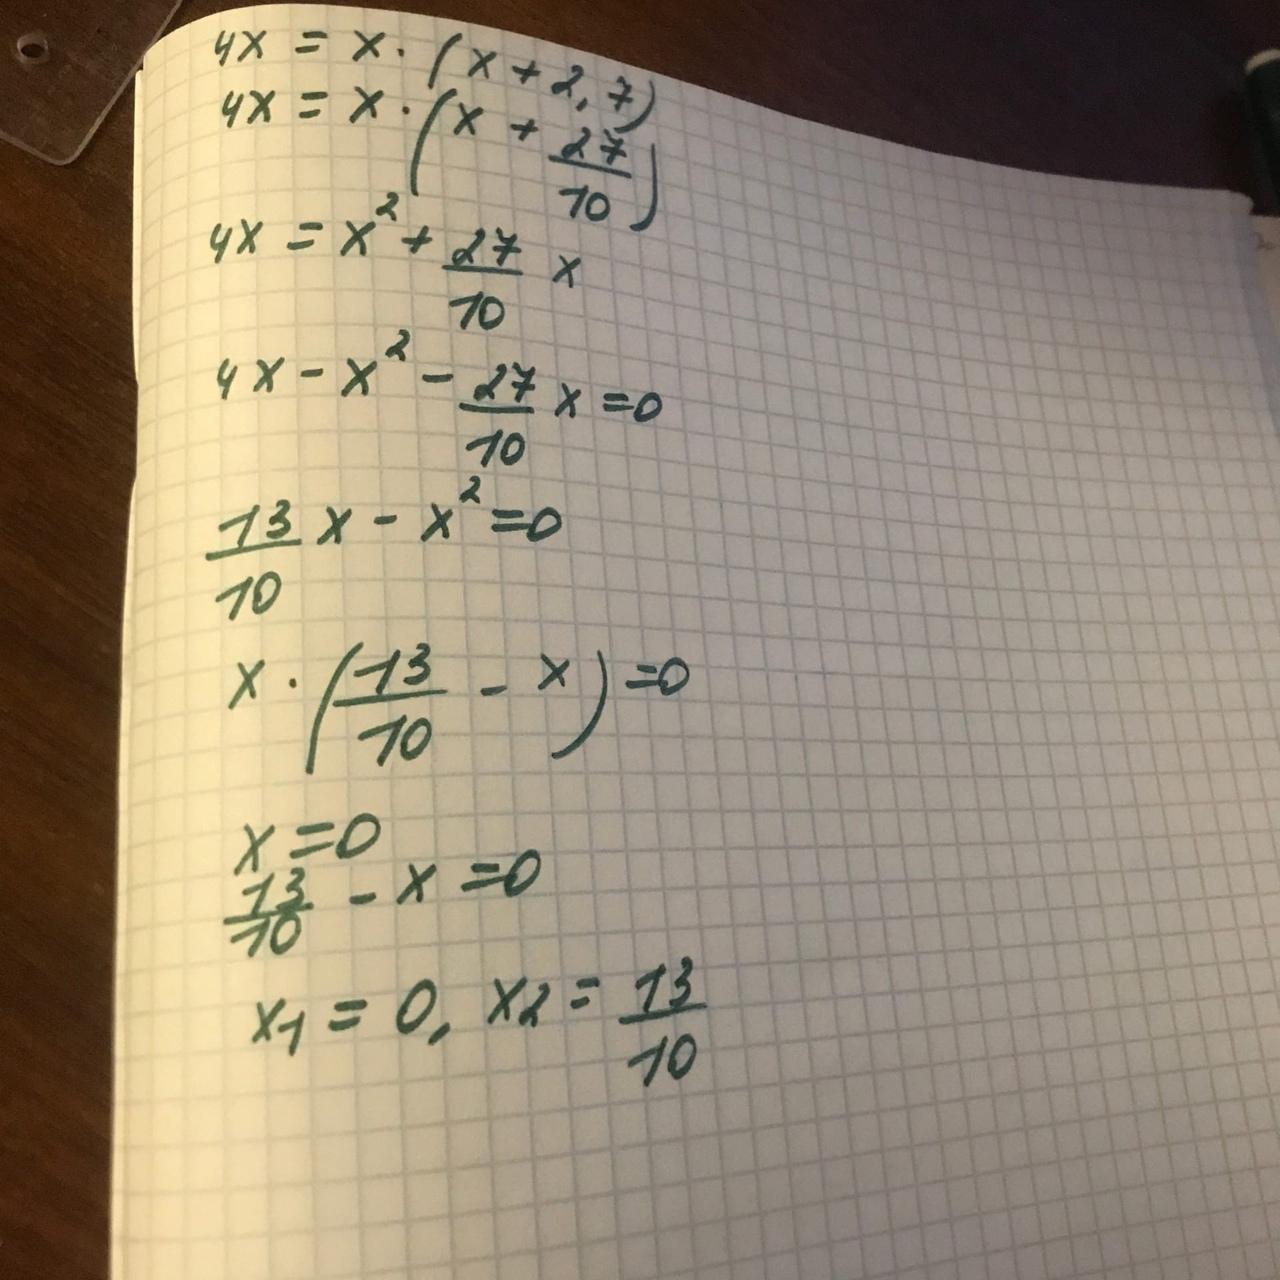 4x = x · (x + 2,7)
4x = x · (x + 27/10)
4x = x² + 27/10 x
4x - x² - 27/10 x = 0
13/10 x - x² = 0
x · (13/10 - x) = 0
x = 0
13/10 - x = 0
x₁ = 0, x₂ = 13/10